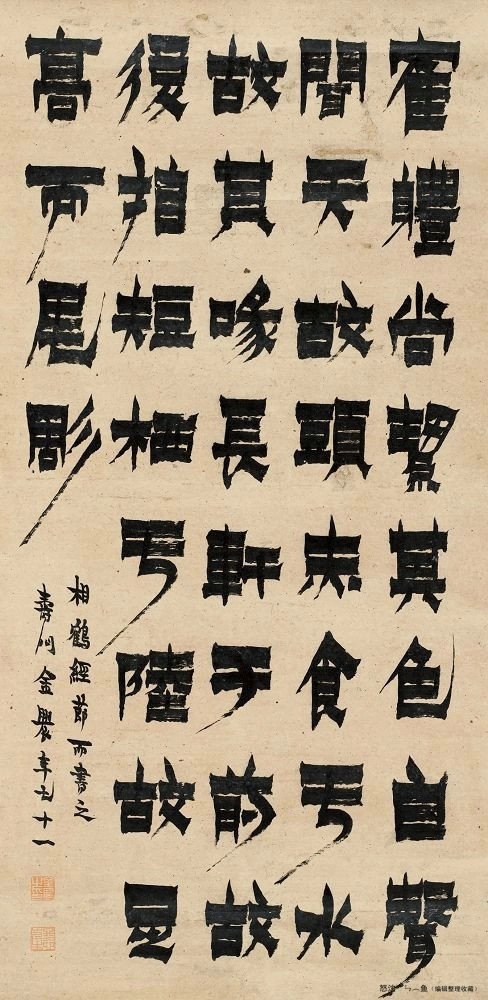 寉軆尚絜其色白聲
聞天故頭朱食亏水
故其喙長軒于前故
後指短栖亏陸故足
高而尾彫
相鶴經節而書之
壽門金農年七十一
（编辑整理收藏）